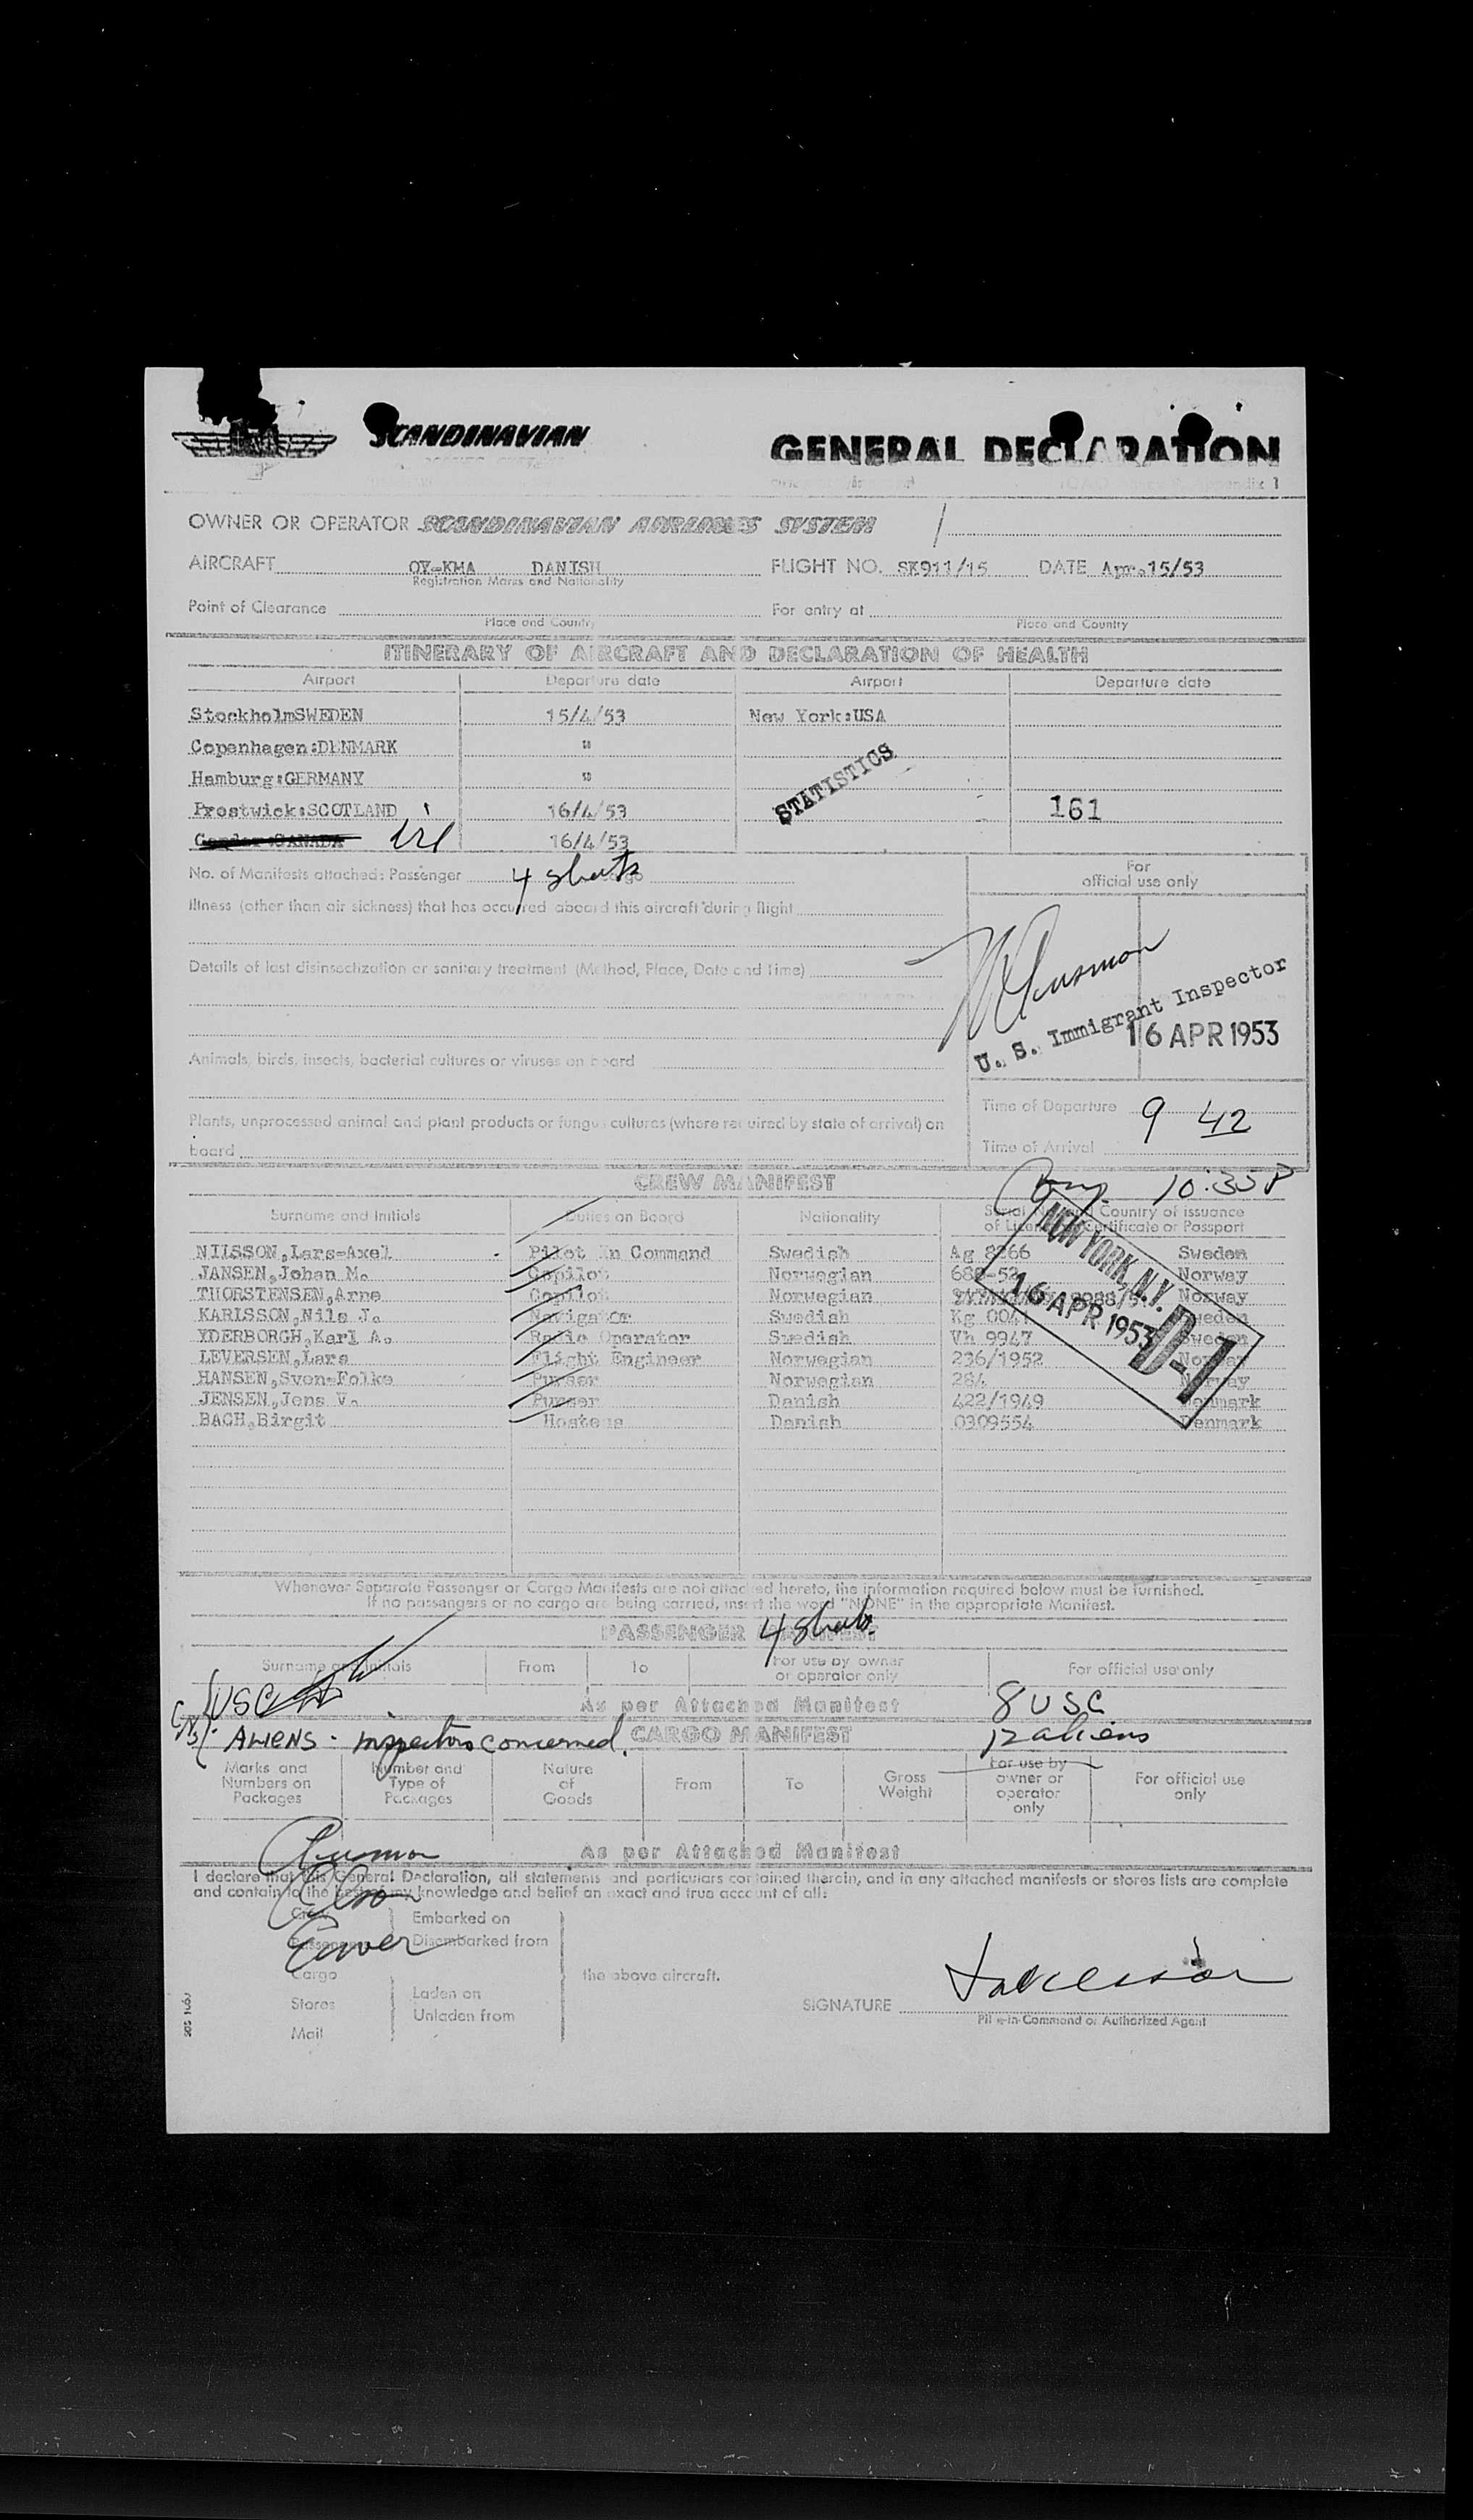 SCANDINAVIAN
GENERAL DECLARATION
OWNER OR OPERATOR SCANDINAVIAN AIRLINES SYSTEM
AIRCRAFT OY-KMA DANISH FLIGHT NO. SK911/15 DATE Apr.15/53
Registration Marks and Nationality
Point of Clearance For entry at
Place and Country Place and Country
ITINERARY OF AIRCRAFT AND DECLARATION OF HEALTH
Airport Departure date Airport Departure date
StockholmSWEDEN 15/4/53 New York:USA
Copenhagen:DENMARK "
Hamburg:GERMANY "
STATISTICS
Prestwick:SCOTLAND 16/4/53 161
Gander:CANADA 16/4/53
No. of Manifests attached: Passenger 4 sheets
For
official use only
Illness (other than air sickness) that has occurred aboard this aircraft during flight
Details of last disinsectization or sanitary treatment (Method, Place, Date and Time)
U. S. Immigrant Inspector
16 APR 1953
Animals, birds, insects, bacterial cultures or viruses on board
Time of Departure 9 42
Plants, unprocessed animal and plant products or fungus cultures (where required by state of arrival) on
board
Time of Arrival
10:35 P
CREW MANIFEST
Surname and Initials Duties on Board Nationality Serial No. and Country of issuance
of Licence Certificate or Passport
NEW YORK, N.Y.
16 APR 1953
D-1
NILSSON,Lars-Axel Pilot In Command Swedish Ag 8266 Sweden
JANSEN,Johan M. Copilot Norwegian 688-52 Norway
THORSTENSEN,Arne Copilot Norwegian Norway
KARLSSON,Nils J. Navigator Swedish Kg 0041 Sweden
YDERBORGH,Karl A. Radio Operator Swedish Vh 9947 Sweden
LEVERSEN,Lars Flight Engineer Norwegian 236/1952 Norway
HANSEN,Sven-Folke Purser Norwegian 284 Norway
JENSEN,Jens V. Purser Danish 422/1949 Denmark
BACH,Birgit Hostess Danish 0309554 Denmark
Whenever Separate Passenger or Cargo Manifests are not attached hereto, the information required below must be furnished.
If no passengers or no cargo are being carried, insert the word "NONE" in the appropriate Manifest.
PASSENGER MANIFEST 4 sheets
Surname and Initials From To For use by owner
or operator only For official use only
USC As per Attached Manifest 8 USC
ALIENS - Inspectors concerned. CARGO MANIFEST 12 aliens
Marks and
Numbers on
Packages Number and
Type of
Packages Nature
of
Goods From To Gross
Weight For use by
owner or
operator
only For official use
only
As per Attached Manifest
I declare that this General Declaration, all statements and particulars contained therein, and in any attached manifests or stores lists are complete
and contain to the best of my knowledge and belief an exact and true account of all:
Crew Embarked on
Passengers Disembarked from
Cargo the above aircraft.
Stores Laden on
Unladen from
Mail
SIGNATURE
Pilot-in-Command or Authorized Agent